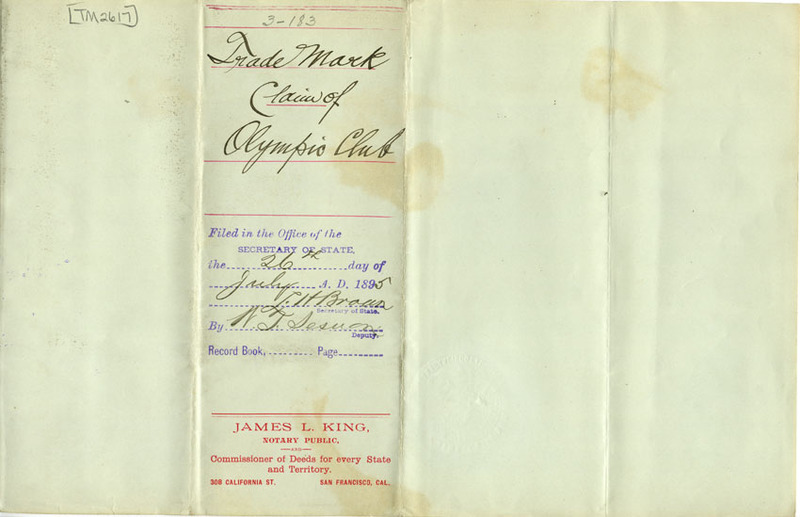 [TM2617]
3-183
Trade Mark
Claim of
Olympic Club
Filed in the Office of the
SECRETARY OF STATE,
the 26th day of
July A. D. 1895
Secretary of State.
By W. T.
Deputy.
Record Book, Page
JAMES L. KING,
NOTARY PUBLIC,
AND
Commissioner of Deeds for every State
and Territory.
308 CALIFORNIA ST. SAN FRANCISCO, CAL.